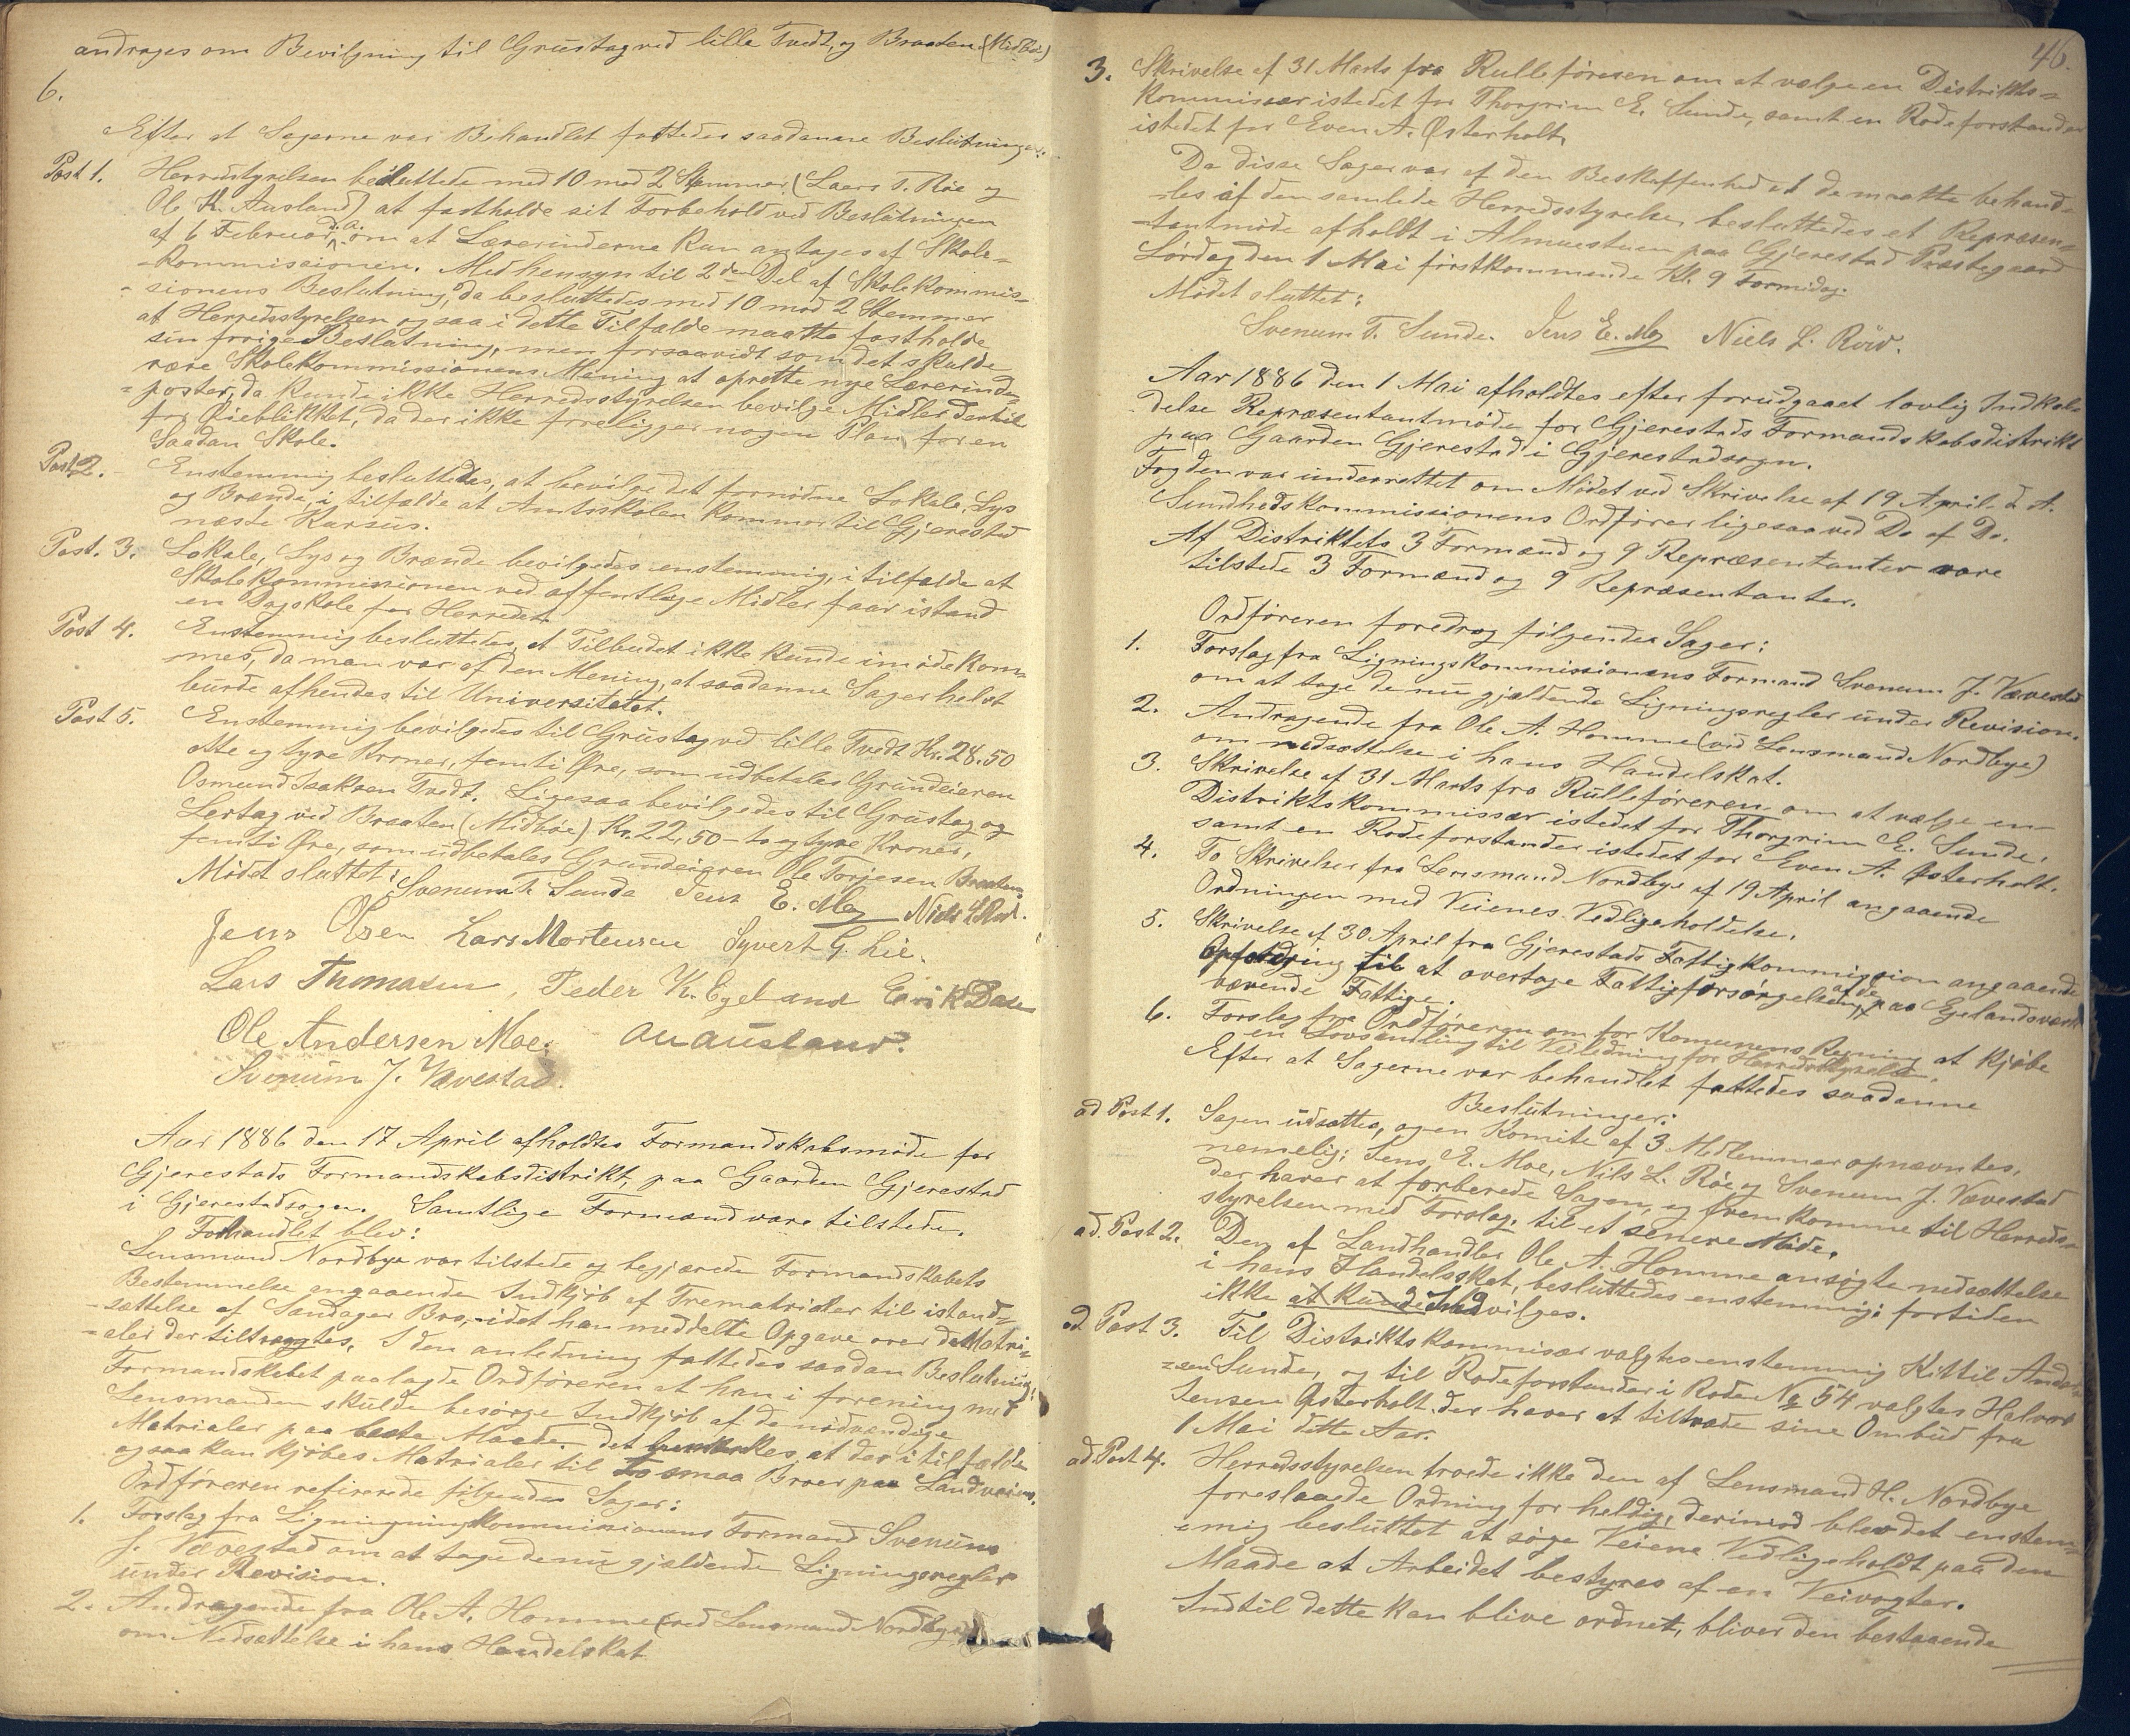 andrages om Bevilgning til Grustag ved lille Tvedt, og Braaten (Midbøe)
6.
Efter at Sagerne var Behandlet fattedes saadanne Beslutninger:
Post 1. Herredstyrelsen besluttede med 10 mod 2 Stemmer, (Laers T. Röe og
Ole A. Ausland) at fastholde sit Forbehold ved Beslutningen
af 6 Februar d. A. om at Lærerinderne kun antages af Skole-
-kommissionen. Med hensyn til 2den Del af Skolekommis-
-sionens Beslutning, da besluttedes med 10 mod 2 Stemmer
at Herredsstyrelsen ogsaa i dette Tilfælde maatte fastholde
sin forrige Beslutning, men forsaavidt som det skulde
være Skolekommissionens Mening at oprette nye Lærerinde-
=poster, da kunde ikke Herredsstyrelsen bevilge Midler dertil
for Øieblikket, da der ikke foreligger nogen Plan for en
Saadan Skole.
Post 2. Enstemmig besluttedes, at bevilge det fornødne Lokale, Lys
og Brænde, i tilfælde at Amtsskolen kommer til Gjerestad
næste Kursus.
Post. 3. Lokale, Lys og Brænde bevilgedes enstemmig, i tilfælde at
Skolekommissionen ved offentlige Midler faar istand
en Dagskole for Herredet.
Post 4. Enstemmig besluttedes, at Tilbudet ikke kunde imødekom-
-mes, da man var af den Mening, at saadanne Sager helst
burde afhendes til Universitetet.
Post 5. Enstemmig bevilgedes til Grustag ved lille Tvedt Kr. 28.50
otte og tyve Kroner, femti Øre, som udbetales Grundeieren
Osmund Isaksen Tvedt. Ligesaa bevilgedes til Grustag og
Lertag ved Braaten (Midbøe) Kr. 22,50 - to og tyve Kroner,
femti Øre, som udbetales Grundeieren Ole Torjesen Braaten.
Mødet sluttet:
Svenum T. Sunde Jens E. Moe Niels L. Röd.
Jens Olsen Lars Mortensen Syvert G. Lie.
Lars Thomasen, Peder K. Egeland Eirik Dale
Ole Andersen Moe. OAAusland.
Svenum J. Vævestad.
Aar 1886 den 17 April afholdtes Formandskabsmøde for
Gjerestads Formandskabsdistrikt, paa Gaarden Gjerestad
i Gjerestadsogn. Samtlige Formænd vare tilstede.
Forhandlet blev:
Lensmand Nordbye var tilstede og begjærede Formandskabets
Bestemmelse angaaende Indkjøb af Trematrialer til istand-
-sættelse af Sandager Bro, idet han meddelte Opgave over de Matri-
-aler der tiltrængtes. I den anledning fattedes saadan Beslutning:
Formandskabet paalagde Ordføreren at han i forening med
Lensmanden skulde besørge Indkjøb af de nødvendige
Matrialer paa beste Maade. Det bemærkes, at der i tilfælde
ogsaa kan kjøbes Matrialer til to smaa Broer paa Landveien.
Ordføreren refererede følgende Sager:
1. Forslag fra Ligningskommissionens Formand Svenum
J. Vævestad om at tage de nu gjældende Ligningsregler
under Revision.
2. Andragende fra Ole A. Homme (ved Lensmand Nordbye)
om Nedsættelse i hans Handelskat
46.
3. Skrivelse af 31 Marts fra Rulleføreren om at vælge en Distrikts=
Kommissær istedet for Thorgrim E. Sunde, samt en Rodeforstander
istedet for Even A. Østerholt,
Da disse Sager var af den Beskaffenhed at de maatte behand-
-les af den samlede Herredsstyrelse, besluttedes et Repræsen-
-tantmøde afholdt i Almuestuen paa Gjerestad Præstegaard
Lørdag den 1 Mai førstkommende Kl. 9 Formidag.
Mødet sluttet:
Svenum T. Sunde. Jens E. Moe Niels L. Röd.
Aar 1886 den 1 Mai afholdtes efter forudgaaet lovlig Indkal-
delse Repræsentantmøde for Gjerestads Formandskabsdistrikt
paa Gaarden Gjerestad i Gjerestadsogn.
Fogden var underrettet om Mødet ved Skrivelse af 19 April d. A.
Sundhedskommissionens Ordfører ligesaa ved Do af Do.
Af Distriktets 3 Formænd og 9 Repræsentanter vare
tilstede 3 Formænd og 9 Repræsentanter.
Ordføreren foredrog følgende Sager:
1. Forslag fra Ligningskommissionens Formand Svenum J. Vævestad
om at tage de nu gjældende Ligningsregler under Revision.
2. Andragende fra Ole A. Homme (ved Lensmand Nordbye)
om nedsættelse i hans Handelskat.
3. Skrivelse af 31 Marts fra Rulleføreren om at vælge en
Distriktskommissær istedet for Thorgrim E. Sunde,
samt en Rodeforstander istedet for Even A. Østerholt.
4. To Skrivelser fra Lensmand Nordbye af 19 April angaaende
Ordningen med Veienes Vedligeholdelse.
5. Skrivelse af 30 April fra Gjerestads Fattigkommission angaaende
Opfordring til at overtage Fattigforsørgelsen af de paa Egelandsværk
værende Fattige.
6. Forslag fra Ordføreren om for Komunens Regning at kjøbe
en Lovsamling til Veiledning for Herredsstyrelsen.
Efter at Sagerne var behandlet fattedes saadanne
Beslutninger:
ad Post 1. Sagen udsattes, og en Komite af 3 Medlemmer opnævntes,
nemelig: Jens E. Moe, Nils L. Röe og Svenum J. Vævestad
der haver at forberede Sagen, og fremkomme til Herreds-
styrelsen med Forslag, til et senere Møde.
ad. Post 2. Den af Landhandler Ole A. Homme ansøgte nedsættelse
i hans Handelsskat, besluttedes enstemmig: fortiden
ikke at kunde Indvilges.
ad Post 3. Til Distriktskommisær valgtes enstemmig Kittil Ander-
=sen Sunde, og til Rodeforstander i Rode No 54 valgtes Halvor
Jensen Østerholt. der haver at tiltræde sine Ombud fra
1 Mai dette Aar.
ad Post 4. Herredsstyrelsen troede ikke den af Lensmand H. Nordbye
foreslaaede Ordning for heldig, derimod blev det enstem-
-mig besluttet at søge Veiene Vedligeholdt paa den
Maade at Arbeidet bestyres af en Veivogter.
Indtil dette kan blive ordnet, bliver den bestaaende